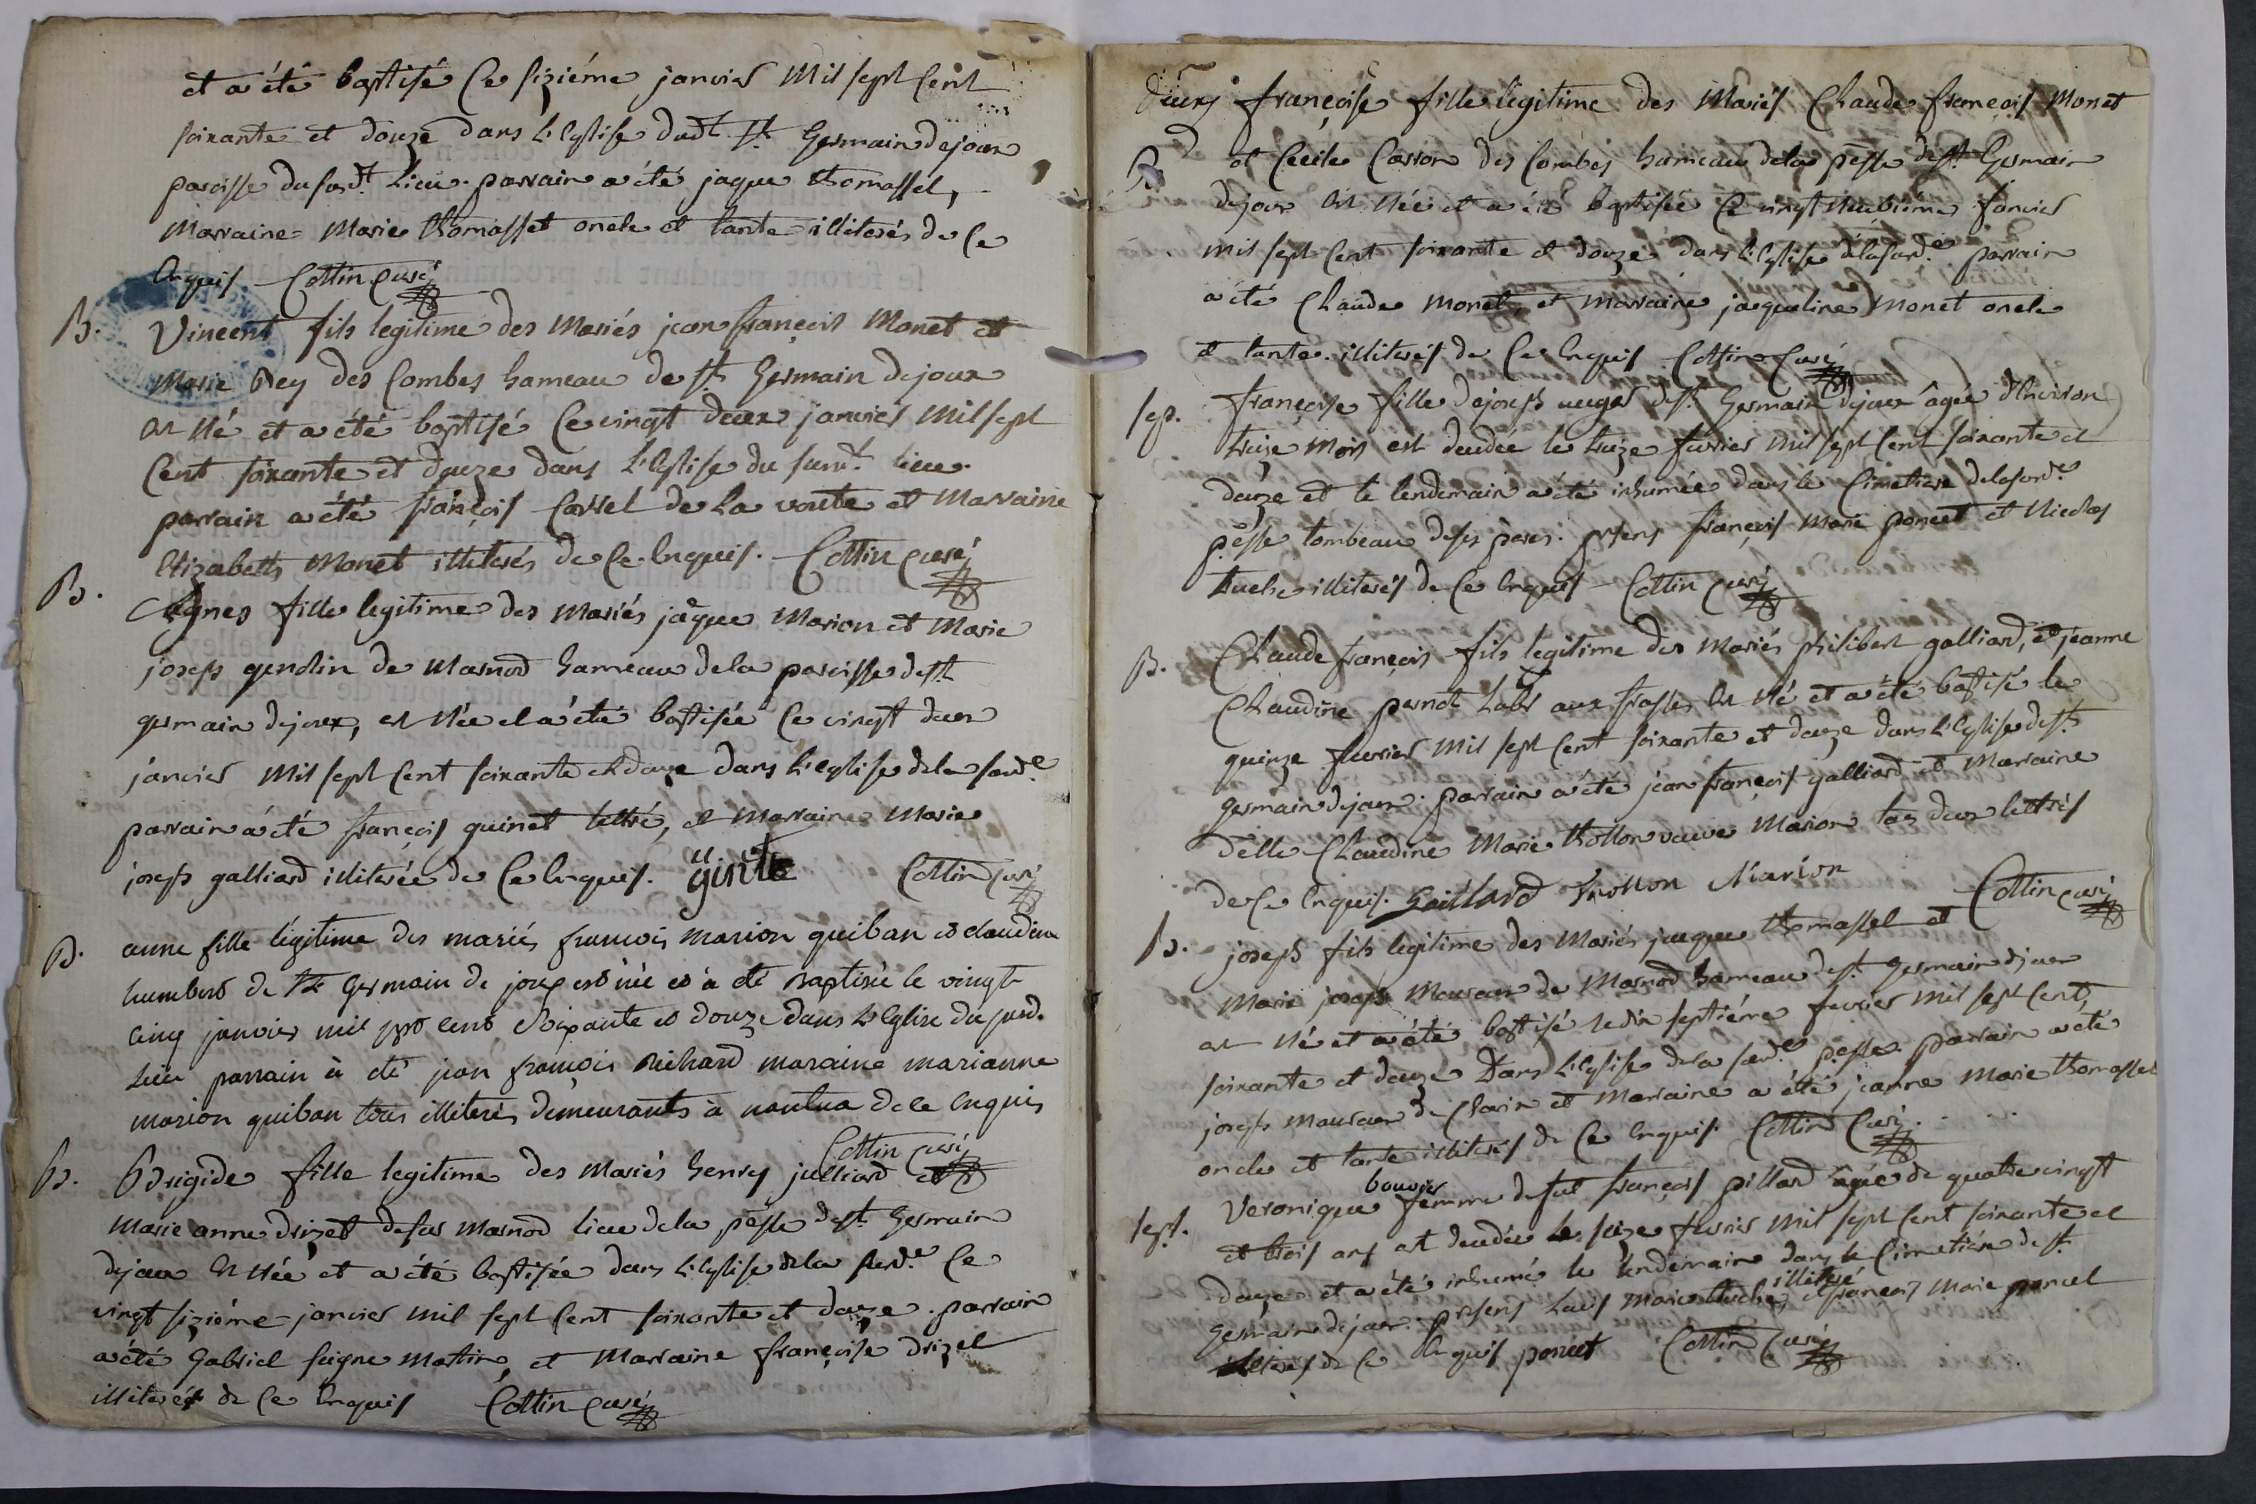 et a été baptisé Ce sizième janvier Mil sept Cent
soixante et douze dans L'Eglise dudt. St. Germain dejoux
paroisse du susdt. Lieu. parrain a été jaque thomasset,
Marraine Marie thomasset oncle et tante illiterés de Ce
Enquis Cottin Curé
B.
Vincent fils legitime des Mariés jean françois Monet et
Marie Rey des Combes hameau de St. Germain dejoux
est Né et a été baptisé Ce vingt deux janvier Mil sept
Cent soixante et douze dans L'Eglise du susdt. lieu.
parrain a été françois Carrel de La voute et Marraine
Elizabeth Monet illiterés de Ce Enquis. Cottin Curé
B.
Agnes fille legitime des Mariés jâque Marion et Marie
joseph gendin de Marnod hameau dela paroisse de St.
germain dejoux, est Née et a été baptisée Ce vingt deux
janvier Mil sept Cent soixante et douze dans L'eglise dela susd.e
parrain a été françois quinet lettré, et Marraine Marie
joseph galliard illiterée de Ce Enquis. Cottin Curé
B.
anne fille légitime des mariés francois marion quiban et claudine
humbert de St. Germain de joux est née et à été Baptisée le vingt
cinq janvier mil sept cent Soixante et douze dans L'Eglise du susd.
Lieu parrain à été jean françois Richard maraine marianne
marion quiban tous illiterés demeurants à nantua de ce Enquis
Cottin Curé
B.
Brigide fille legitime des Mariés henry julliard et
Marie anne drizet de sur Marnod lieu dela pèsse de St. Germain
dejoux est Née et a été baptisée dans L'Eglise dela susd.e Ce
vingt sizième janvier mil sept Cent soixante et douze. parrain
a été Gabriel Seigne Matin, et Marraine françoise drizet
illiterés de Ce Enquis Cottin Curé
françoise fille légitime des Mariés Claude françois Monet
B
et Cecile Carron des Combes hameau dela pèsse de St. Germain
dejoux est Née et a été baptisée Ce vingt Neuvième janvier
mil sept Cent soixante et douze dans L'Eglise de la susd.e parrain
a été Claude Monet, et Marraine jaqueline Monet oncle
et tante. illiterés de Ce Enquis Cottin Curé
sep.
françoise fille de joseph de St. Germain dejoux âgée d'Environ
treize Mois est decedée le treize fevrier Mil sept Cent soixante et
douze et le lendemain a été inhumée dans le Cimetiere dela susd.e
pèsse tombeau de ses peres. presens françois Marie poncet et Nicolas
tuche illiterés de Ce Enquis Cottin Curé
B.
Claude françois fils legitime des Mariés philibert galliard, et jeanne
Claudine pernod est Né et a été baptisé le
quinze fevrier Mil sept Cent soixante et douze dans L'Eglise de St.
germain dejoux. parrain a été jean françois galliard et Marraine
delle Claudine Marie thollon veuve Marion tous deux lettrés
de Ce Enquis. Gaillard Thollon Marion
Cottin curé
B.
joseph fils legitime des Mariés jacque thomasset et
Marie joseph de Marnod hameau de St. Germain dejoux
est Né et a été baptisé le dix septième fevrier mil sept Cent
soixante et douze Dans L'Eglise dela susd.e pèsse. parrain a été
joseph et Marraine a été jeanne Marie thomasset
oncle et tante illiterés de Ce Enquis. Cottin Curé
sept.
Veronique bouvier femme de feu françois pillard âgée de quatre vingt
et trois ans est decedée le seize fevrier Mil sept Cent soixante et
douze et a été inhumé le lendemain dans le Cimetière de St.
Germain dejoux. presens Louis Marie tuche, illiteré et françois Marie poncet
de Ce Enquis poncet Cottin Curé